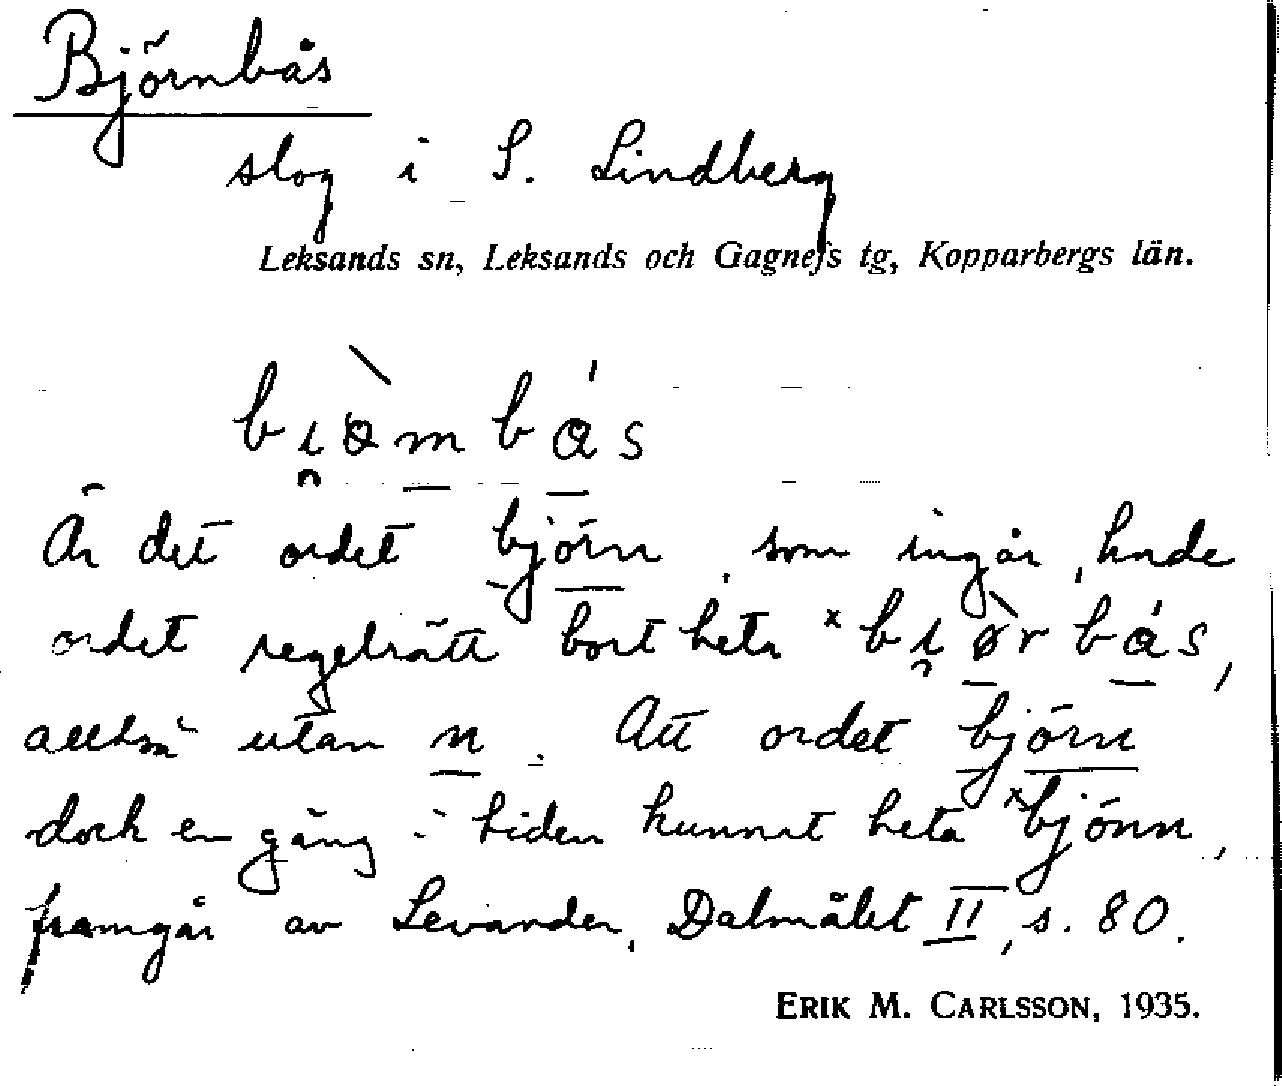 Björnbås
slog i S. Lindberg
Leksands sn, Leksands och Gagnefs tg, Kopparbergs län.
Är det ordet björn, som ingår, hade
ordet regelrätt bort heta
alltså utan n. Att ordet björn
dock en gång i tiden kunnat heta *bjönn,
framgår av Levander, Dalmålet II, s. 80.
ERIK M. CARLSSON, 1935.